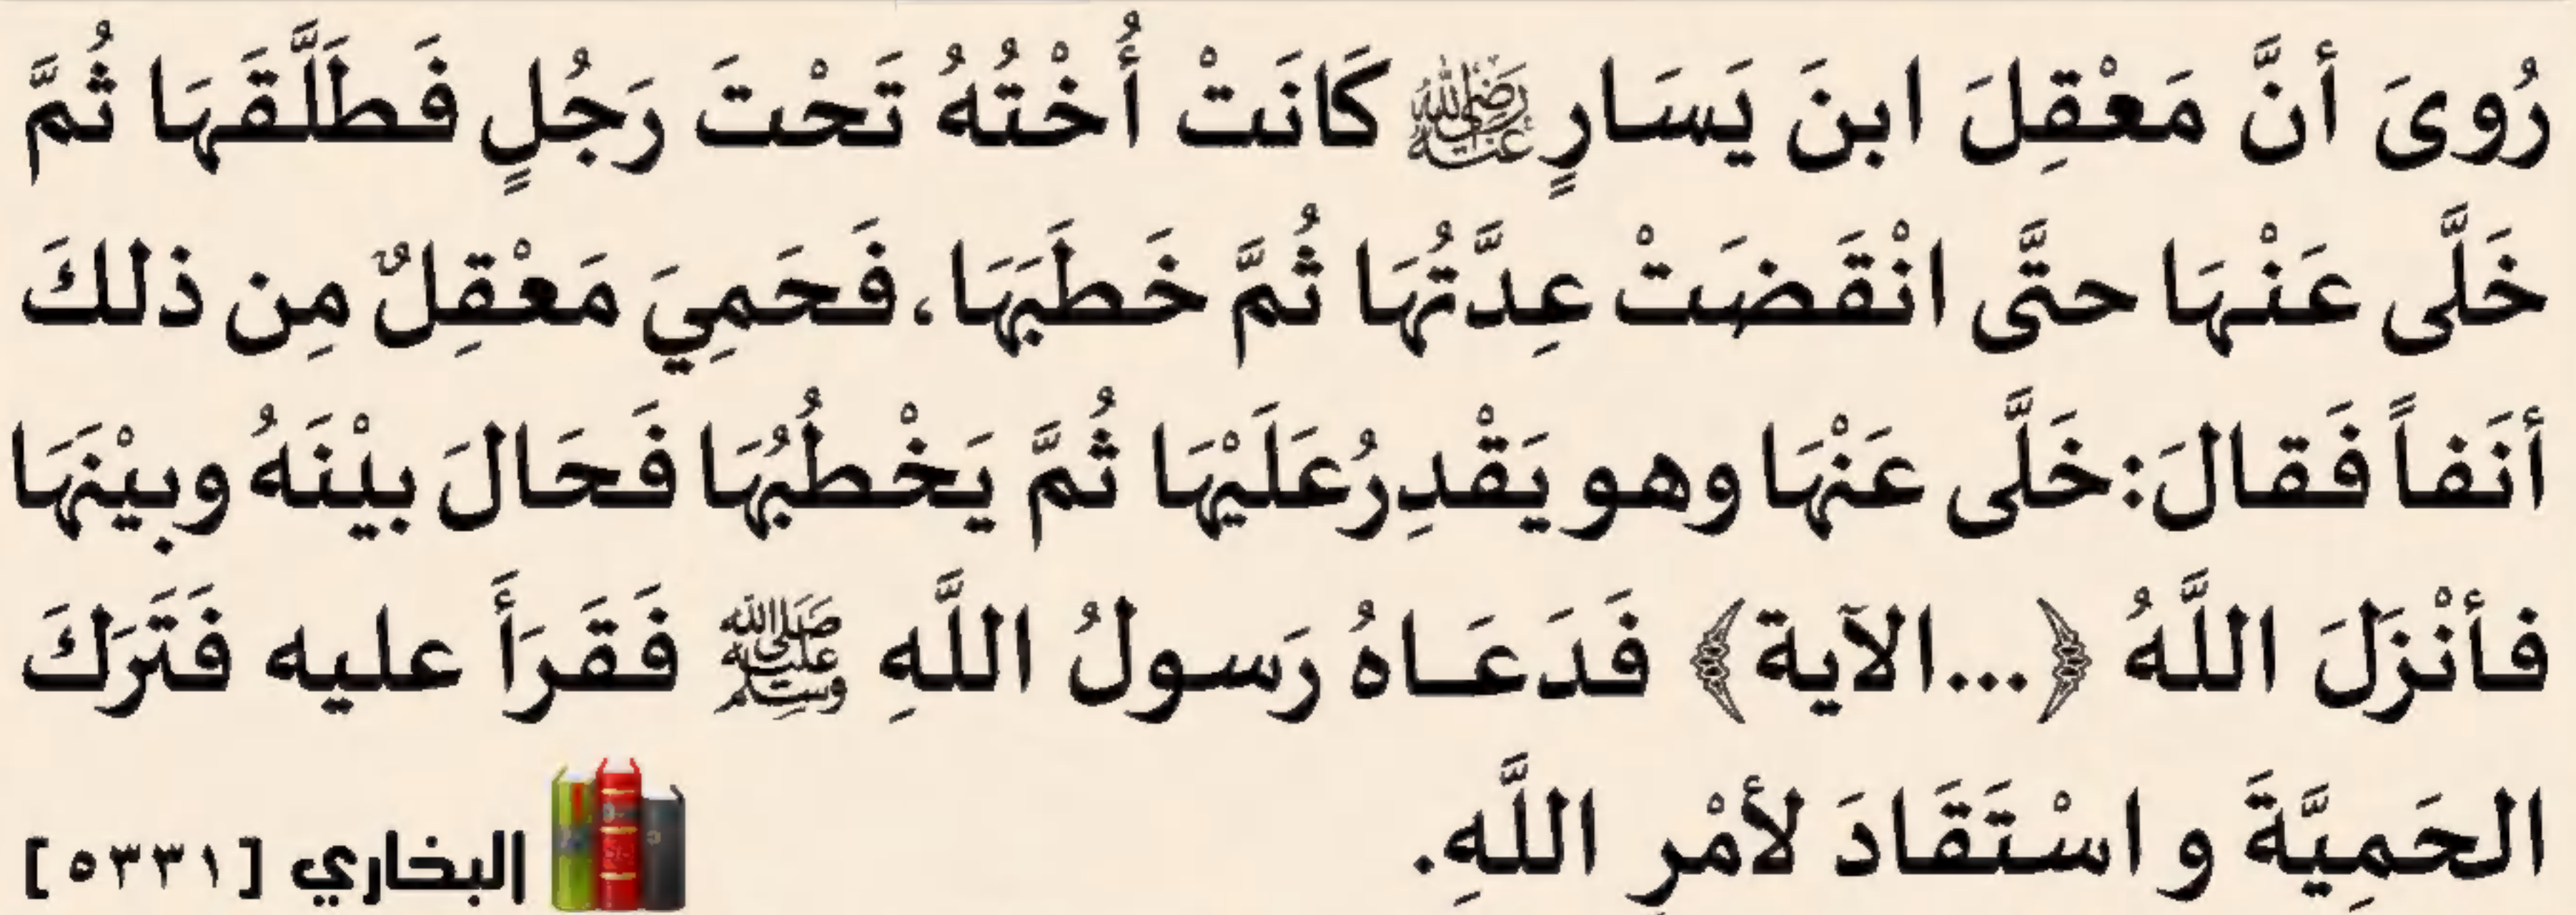 رُوىَ أنَّ مَعْقِلَ ابنَ يَسَارٍ ﵁ كَانَتْ أُخْتُهُ تَحْتَ رَجُلٍ فَطَلَّقَهَا ثُمَّ
خَلَّى عَنْهَا حتَّى انْقَضَتْ عِدَّتُهَا ثُمَّ خَطَبَهَا، فَحَمِيَ مَعْقِلٌ مِن ذلكَ
أنَفاً فَقالَ: خَلَّى عَنْهَا وهو يَقْدِرُ عَلَيْهَا ثُمَّ يَخْطُبُهَا فَحَالَ بيْنَهُ وبيْنَهَا
فأنْزَلَ اللَّهُ ﴿...الآية﴾ فَدَعَـاهُ رَسولُ اللَّهِ ﷺ فَقَرَأَ عليه فَتَرَكَ
الحَمِيَّةَ و اسْتَقَادَ لأمْرِ اللَّهِ.
البخاري [٥٣٣١]